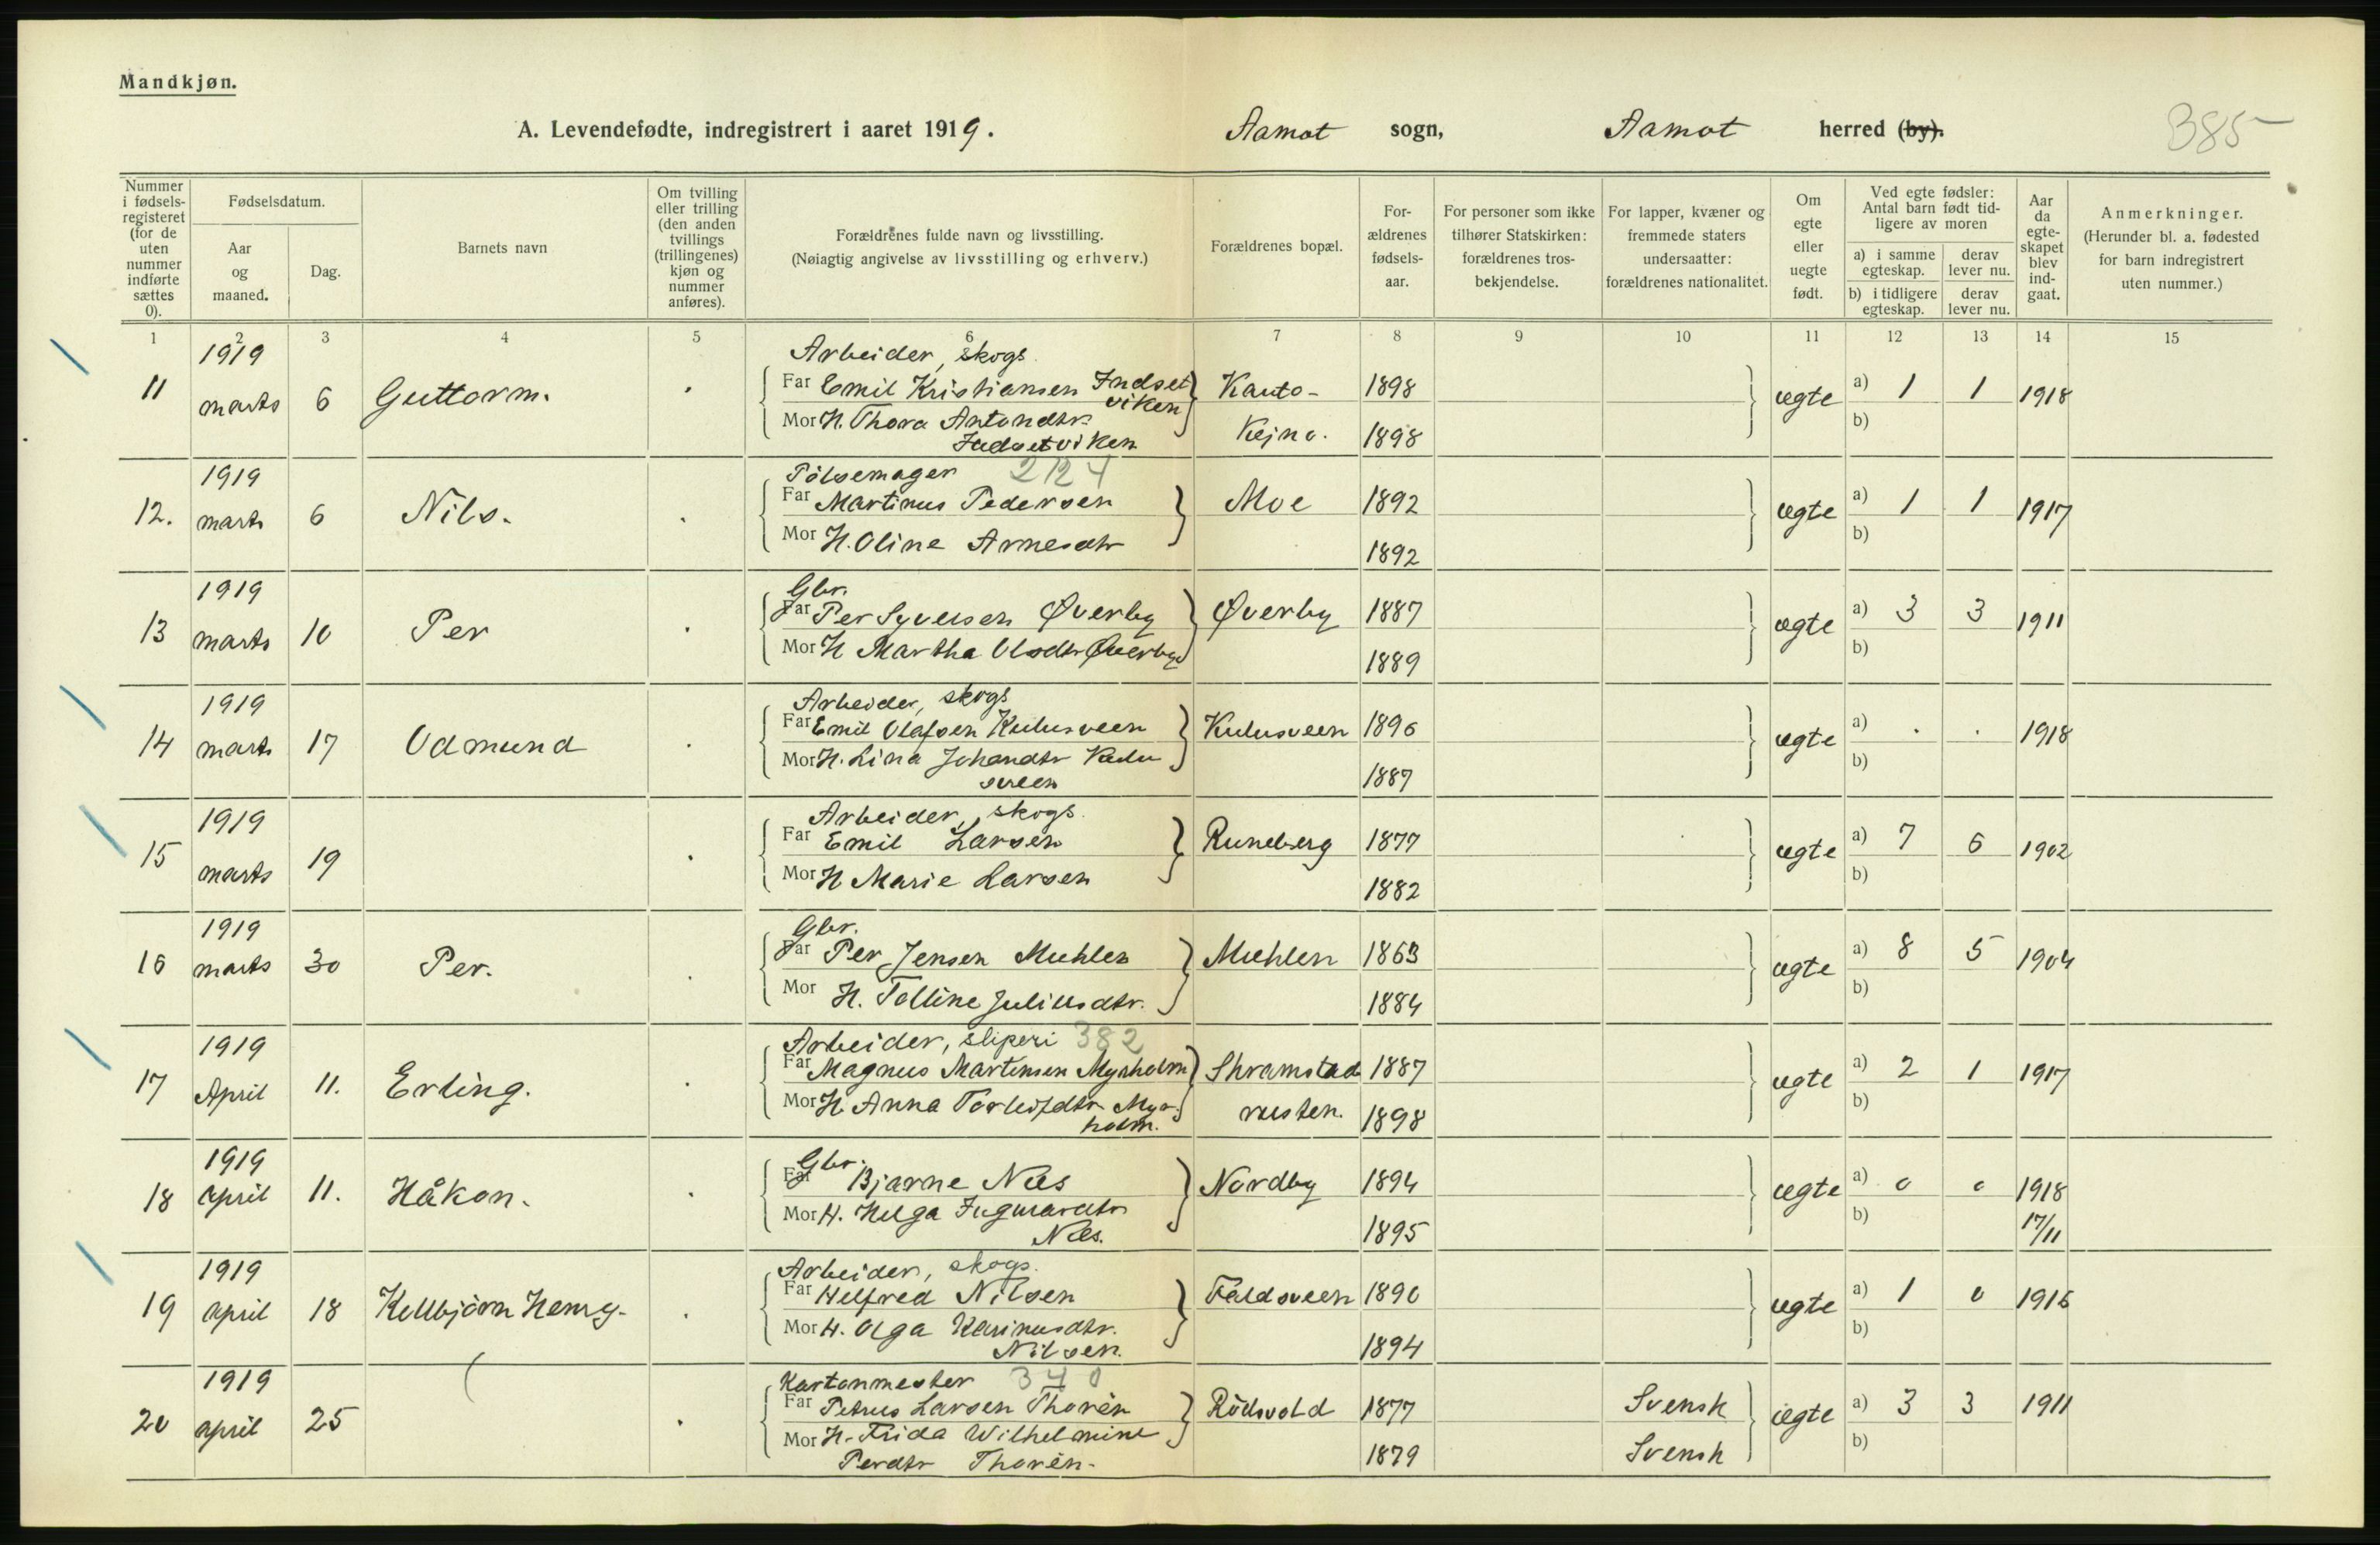 Mandkjøn.
A. Levendefødte, indregistrert i aaret 1919. Aamot sogn, Aamot herred (by). 385
Nummer i fødsels-registeret (for de uten nummer indførte sættes 0).
Fødselsdatum.
Aar og maaned.
Dag.
Barnets navn
Om tvilling eller trilling (den anden tvillings (trillingenes) kjøn og nummer anføres).
Forældrenes fulde navn og livsstilling.
(Nøiagtig angivelse av livsstilling og erhverv.)
Forældrenes bopæl.
For-ældrenes fødsels-aar.
For personer som ikke tilhører Statskirken: forældrenes tros-bekjendelse.
For lapper, kvæner og fremmede staters undersaatter: forældrenes nationalitet.
Om egte eller uegte født.
Ved egte fødsler: Antal barn født tid-ligere av moren
a) i samme egteskap.
derav lever nu.
b) i tidligere egteskap.
derav lever nu.
Aar da egte-skapet blev ind-gaat.
Anmerkninger.
(Herunder bl. a. fødested for barn indregistrert uten nummer.)
1 2 3 4 5 6 7 8 9 10 11 12 13 14 15
1919 Arbeider, skogs.
11 marts 6 Guttorm. Far Emil Kristiansen Indset viken Kauto- 1898 egte a) 1 1 1918
Mor H. Thora Antondtr. Kejno. 1898 b)
Indsetviken
1919 Pølsemager 2124
12. marts 6 Nils. Far Martinus Pedersen Moe 1892 egte a) 1 1 1917
Mor H. Oline Arnesdtr 1892 b)
1919 Gbr.
13 marts 10 Per Far Per Syversen Øverby Øverby 1887 egte a) 3 3 1911
Mor H Martha Olsdtr Øverby 1889 b)
1919 Arbeider, skogs
14 marts 17 Odmund Far Emil Olafsen Kulusveen Kulusveen 1896 egte a) . . 1918
Mor H. Lina Johandtr Kulu 1887 b)
sveen
1919 Arbeider, skogs.
15 marts 19 Far Emil Larsen Runeberg 1877 egte a) 7 6 1902
Mor H Marie Larsen 1882 b)
1919 Gbr.
16 marts 30 Per. Far Per Jensen Muhlen Muhlen 1863 egte a) 8 5 1904
Mor H. Tolline Juliusdtr. 1884 b)
1919 Arbeider, sliperi 382
17 April 11. Erling. Far Magnus Martinsen Myrholm Skramstad 1887 egte a) 2 1 1917
Mor H Anna Torleifdtr Myr- rusten. 1898 b)
holm.
1919 Gbr.
18 april 11. Håkon. Far Bjarne Næs Nordby 1894 egte a) 0 0 1918
Mor H. Helga Ingvardtr 1895 b) 17/11
Næs.
1919 Arbeider, skogs.
19 april 18 Kellbjörn Henry. Far Helfred Nilsen Faldsveen 1890 egte a) 1 0 1916
Mor H. Olga Karinusdtr. 1894 b)
Nilsen.
1919 Kartonmester 340
20 april 25 Far Petrus Larsen Thorén Rödsvold 1877 Svensk egte a) 3 3 1911
Mor H. Frida Wilhelmine 1879 Svensk b)
Perdtr Thorén.